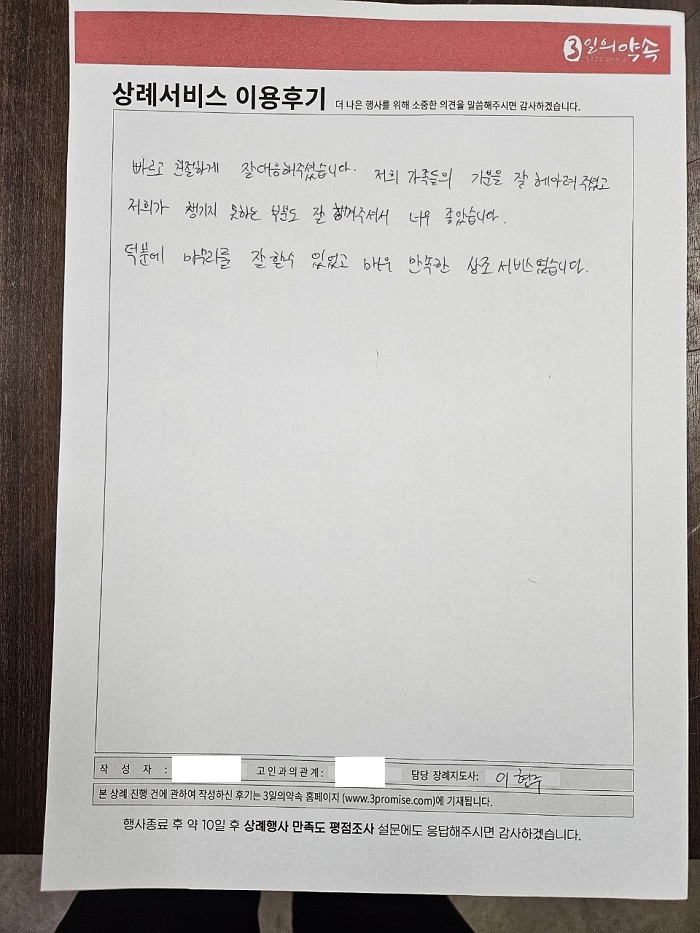 3일의약속
상례서비스 이용후기 더 나은 행사를 위해 소중한 의견을 말씀해주시면 감사하겠습니다.
빠르고 친절하게 잘대응해주셨습니다. 저희 가족들의 기분을 잘 헤아려주셨고
저희가 챙기지 못하는 부분도 잘 챙겨주셔서 너무 좋았습니다.
덕분에 마무리를 잘 할수 있었고 매우 만족한 상조 서비스였습니다.
작 성 자 : 고인과의관계: 담당 장례지도사: 이현주
본 상례 진행 건에 관하여 작성하신 후기는 3일의약속 홈페이지 (www.3promise.com)에 기재됩니다.
행사종료 후 약 10일 후 상례행사 만족도 평점조사 설문에도 응답해주시면 감사하겠습니다.